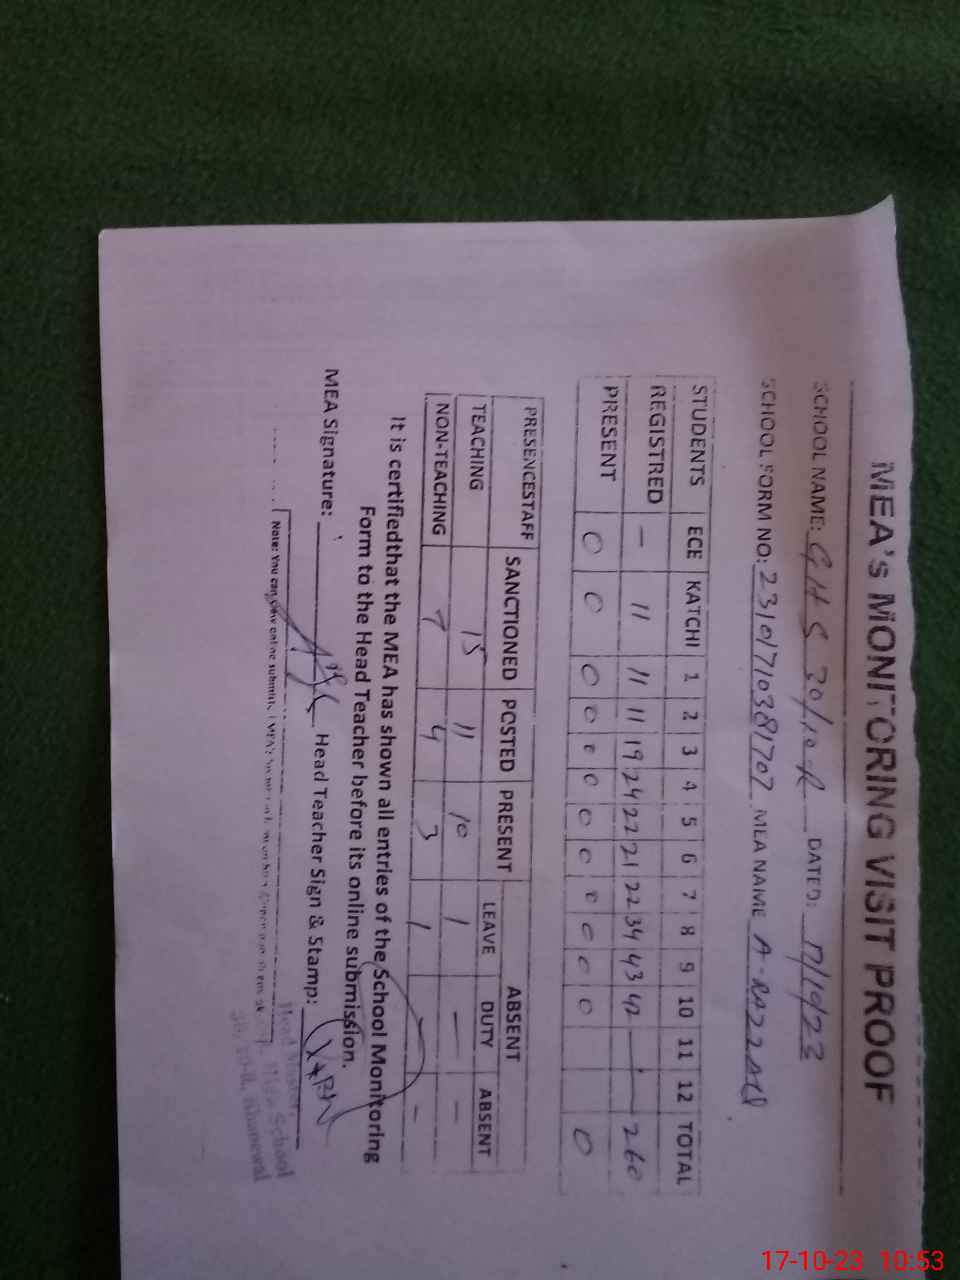 MEA's MONITORING VISIT PROOF
SCHOOL NAME: GHS 30/10-R DATED: 17/10/23
SCHOOL FORM NO: 23101710381707 MEA NAME A-RAZZAQ
STUDENTS ECE KATCHI 1 2 3 4 5 6 7 8 9 10 11 12 TOTAL
REGISTRED - 11 11 11 19 24 22 21 22 34 43 42 — 260
PRESENT 0 0 0 0 0 0 0 0 0 0 0 0 0
PRESENCESTAFF SANCTIONED POSTED PRESENT ABSENT
LEAVE DUTY ABSENT
TEACHING 15 11 10 1 — —
NON-TEACHING 7 4 3 1 — —
It is certifiedthat the MEA has shown all entries of the School Monitoring
Form to the Head Teacher before its online submission.
MEA Signature: Head Teacher Sign & Stamp:
Note: You can view online
Head Master
High School
Khanewal
17-10-23 10:53